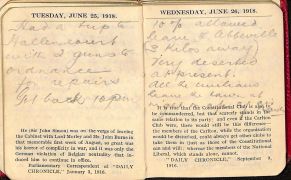 TUESDAY, JUNE 25, 1918.
Had a trip to
Hallencourt
with 2 guns to
ordnance
for repairs
Got back 10pm
He (Sir John Simon) was on the verge of leaving
the Cabinet with Lord Morley and Mr. John Burns in
that memorable first week of August, so great was
his horror of complicity in the war, and it was only the
German violation of Belgian neutrality that in-
duced him to continue in office.
Parliamentary Correspondent of "DAILY
CHRONICLE," January 3, 1916.
WEDNESDAY, JUNE 26, 1918.
10% allowed
leave to Abbeville
kilos away
Very deserted
at present.
All the civilians
have to leave at
It is true that the Constitutional Club is also to
be commandeered, but that scarcely stands in the
same relation to its party; and even if the Carlton
Club were, there would still be this difference—
the members of the Carlton, while the organisation
would be dislocated, could always get other clubs to
take them in just as those of the Constitutional
can and will; whereas the members of the National
Liberal, which stands alone, cannot.
"DAILY CHRONICLE," September 9,
1916.